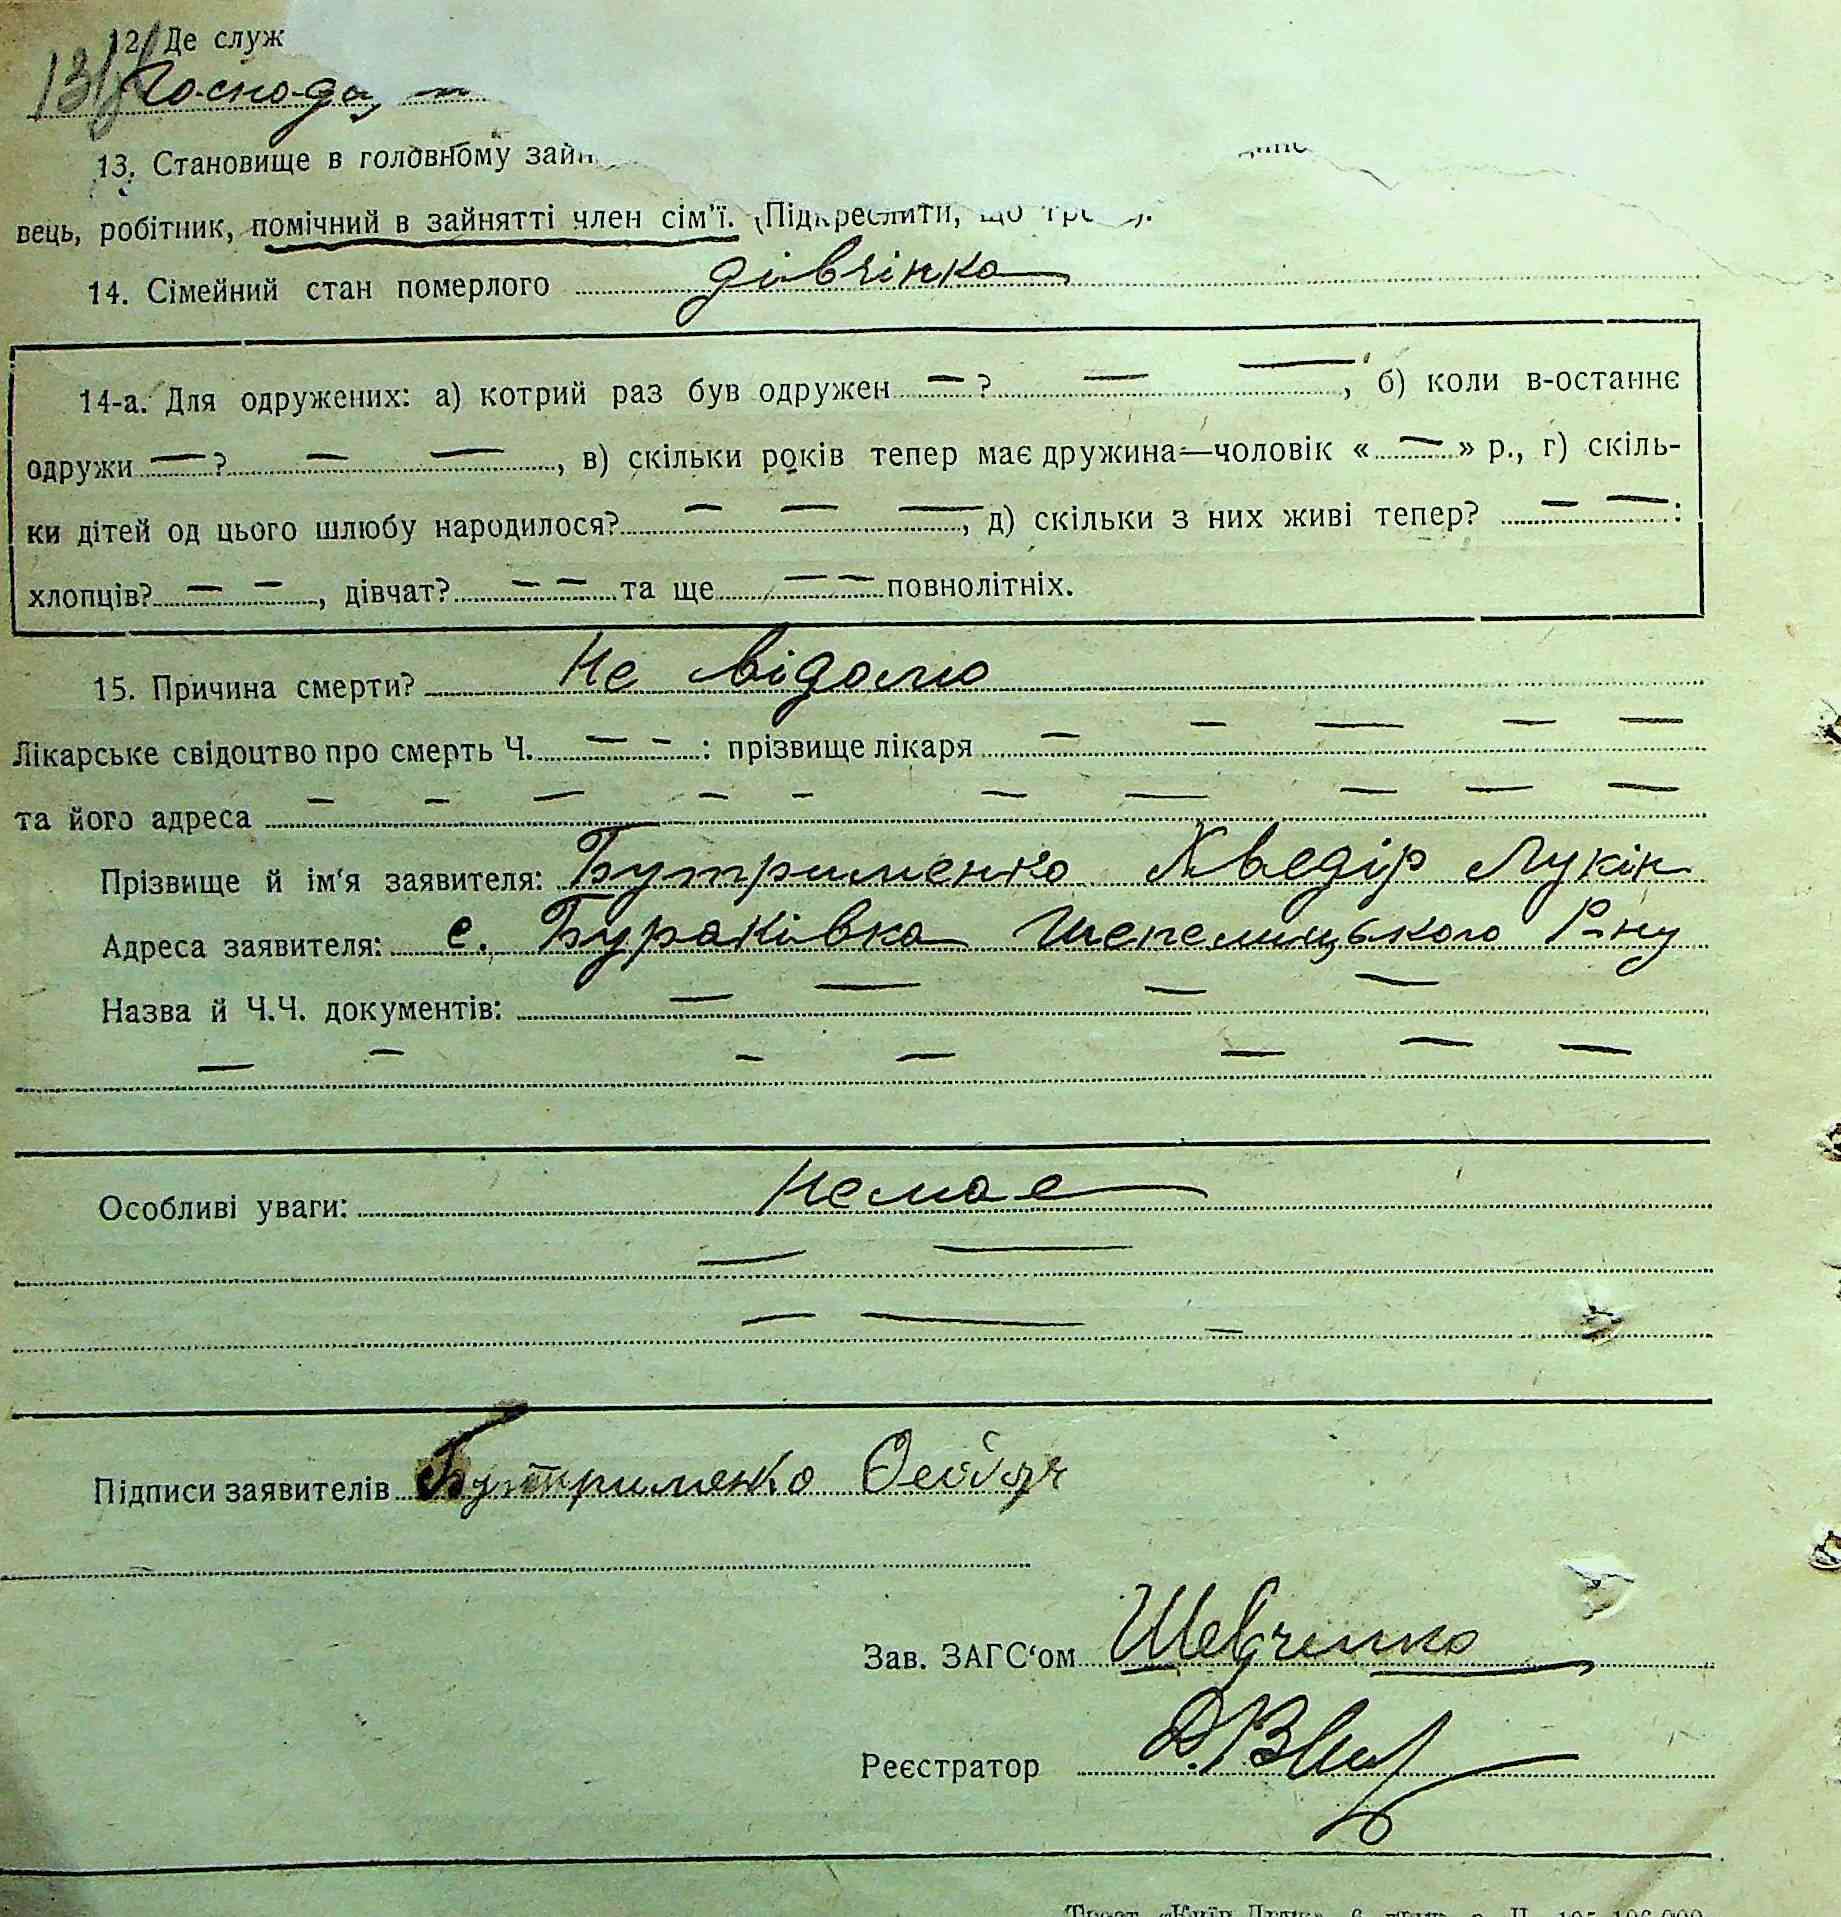 12. Де служ
13. Становище в головному зайн
вець, робітник, помічний в зайнятті член сім'ї. (Підкреслити, що
14. Сімейний стан померлого дівчінка
14-а. Для одружених: а) котрий раз був одружен — ? — — , б) коли в-останнє
одружи — ? — — , в) скільки років тепер має дружина—чоловік « — » р., г) скіль-
ки дітей од цього шлюбу народилося? — — — , д) скільки з них живі тепер? — — :
хлопців? — — , дівчат? — — та ще — — повнолітніх.
15. Причина смерти? Не відомо
Лікарське свідоцтво про смерть Ч. — — : прізвище лікаря — — — — —
та його адреса — — — — — — — — — —
Прізвище й ім'я заявителя: Бутрименко Хведір Лукін
Адреса заявителя: с. Бураківка Шепелицького Р-ну
Назва й Ч.Ч. документів: — — — —
— — — — — — —
Особливі уваги: Немає
— —
— — —
Підписи заявителів Бутрименко
Зав. ЗАГС'ом Шевченко
Реєстратор